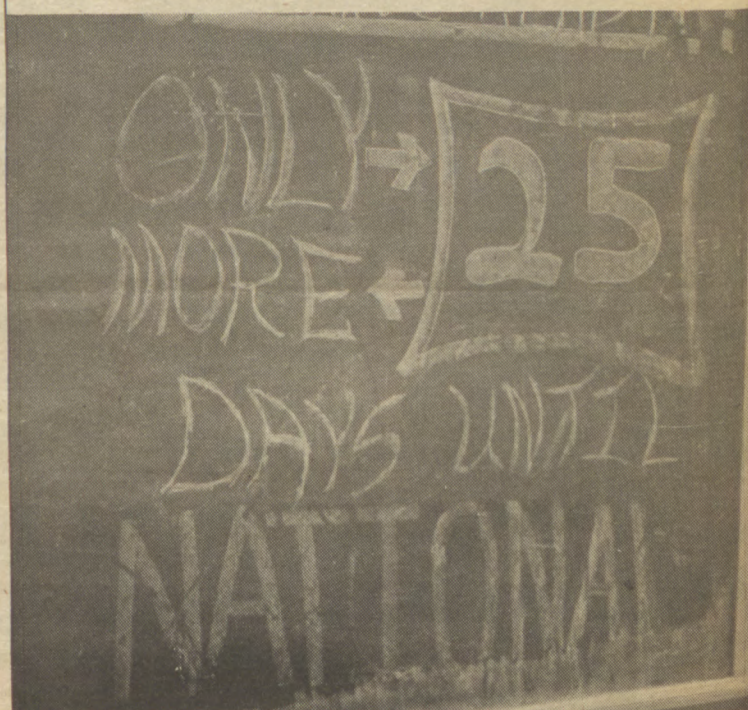 ONLY → 25
MORE ←
DAYS UNTIL
NATIONAL